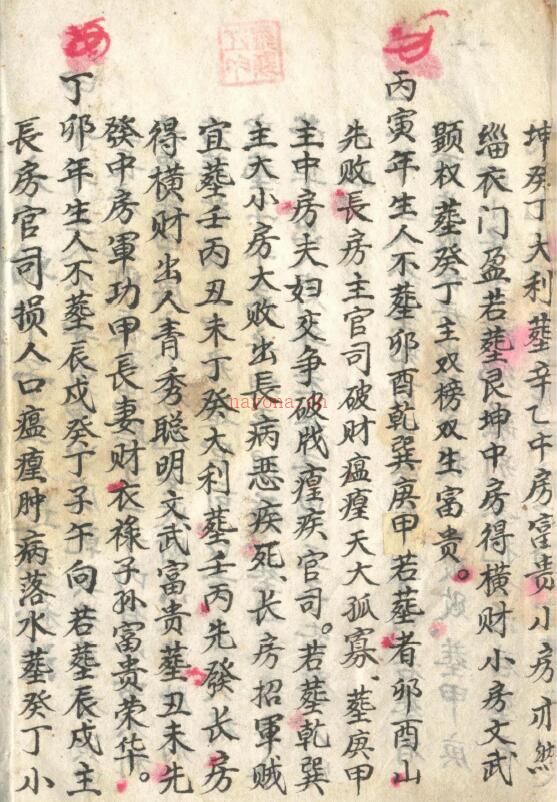 坤癸丁大利葬辛乙中房富贵小房亦然
缁衣门盈若葬艮坤中房得横财小房文武
顕权葬癸丁主双榜双生富贵。
丙寅年生人不葬卯酉乾巽庚甲若葬者卯酉山
先败長房主官司破财瘟瘽天大孤寡、葬庚甲
主中房夫妇交争破戝瘽疾官司。若葬乾巽
主大小房大败出長病恶疾死、长房招軍贼
宜葬壬丙丑未丁癸大利葬壬丙先發长房
得横财出人青秀聪明文武富贵葬丑未先
發中房軍功甲長妻财衣禄子孙富贵荣华。
丁卯年生人不葬辰戍癸丁子午向若葬辰戍主
長房官司损人口瘟瘽肿病落水葬癸丁小
nayona.cn